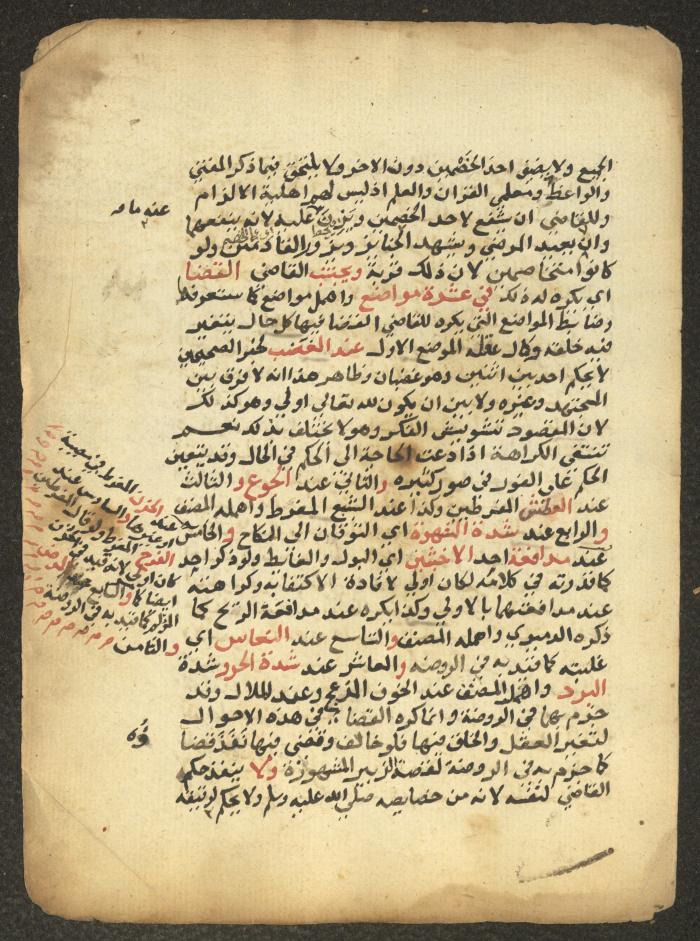 الجميع ولا يضيف احد الخصمين دون الاخر ولا يلتحق فيما ذكر المفتي
والواعظ ومعلمي القران والعلم اذ ليس لهم اهلية الالزام
وللقاضي ان يشفع لاحد الخصمين ويزن عليه لانه ينفعهما
وان يعيد المرضي ويشهد الجنايز ويزور القادمين ولو
كانوا متخاصمين لان ذلك قربة ويجتنب القاضي القضا
اي يكره له ذلك في عشرة مواضع واهمل مواضع كما ستعرفه
وضابط المواضع التي يكره للقاضي القضا فيها كل حال يتغير
فيه خلقه وكمال عقله الموضع الاول عند الغضب لخبر الصحيحين
لا يحكم احد بين اثنين وهو غضبان وظاهر هذا انه لا فرق بين
المجتهد وغيره ولا بين ان يكون لله تعالي اولي وهو كذلك
لان المقصود تشويش الفكر وهو لا يختلف بذلك نعم
تنتفي الكراهة اذا دعت الحاجة الي الحكم في الحال وقد يتعين
الحكم علي الفور في صور كثيره والثاني عند الجوع والثالث
عند العطش المفرطين وكذا عند الشبع المفرط واهمله المصنف
والرابع عند شدة الشهوة اي التوقان الي النكاح والخامس
عند مدافعة احد الاخبثين اي البول والغائط ولو ذكر احد
كما قدرته في كلامه لكان اولي لافادة الاكتفا به وكراهته
عند مدافعتهما بالاولي وكذا يكره عند مدافعة الريح كما
ذكره الدميري واهمله المصنف والتاسع عند النعاس اي
غلبته كما قيد به في الروضه والعاشر عند شدة الحر وشدة
البرد واهمل المصنف عند الخوف المزعج وعند الملال وقد
جزم بهما في الروضة وانما كره القضا في هذه الاحوال
لتغير العقل والخلق فيها فلو خالف وقضي فيها نفذ قضا
وه
كما جزم به في الروضة لقصة الزبير المشهورة ولا ينفذ حكم
القاضي لنفسه لانه من خصايصه صلي الله عليه وسلم ولا يحكم لرقيقه
عنه ما مه
الحزن المفرط في مصيبة
او غيرها والسادس عند
الفرح المفرط
والثامن